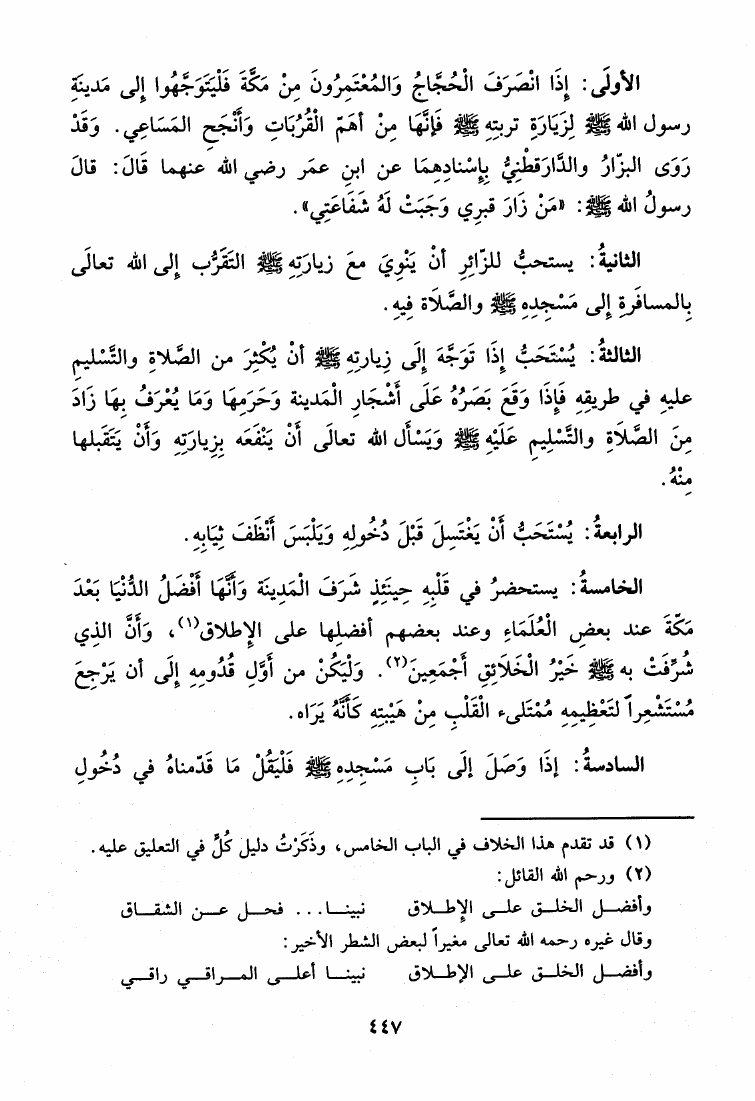 الأولَى: إِذَا انْصَرَفَ الْحُجَّاجُ وَالمُعْتَمِرُونَ مِنْ مَكَّةَ فَلْيَتَوَجَّهُوا إِلى مَدينَةِ
رسول الله ﷺ لِزِيَارَةِ تربتِهِ ﷺ فَإِنَّهَا مِنْ أهَمّ الْقُرُبَاتِ وَأَنْجَحِ المَسَاعِي. وَقَدْ
رَوَى البزّارُ والدَّارَقطْنِيُّ بِإِسْنادِهِمَا عن ابنِ عمَر رضي الله عنهما قَالَ: قالَ
رسولُ الله ﷺ: «مَنْ زَارَ قبرِي وَجَبَتْ لَهُ شَفَاعَتِي».
الثانيةُ: يستحبُّ للزّائِرِ أنْ يَنْوِيَ معَ زيارَتِهِ ﷺ التَقَرُّب إِلى الله تعالَى
بِالمسافَرةِ إِلى مَسْجِدِهِ ﷺ والصَّلَاة فِيهِ.
الثالثةُ: يُسْتَحَبُّ إِذَا تَوَجَّهَ إِلَى زِيارتِهِ ﷺ أنْ يُكْثِرَ من الصَّلاةِ والتَّسْليم
عليهِ في طريقِهِ فَإِذَا وَقَعَ بَصَرُهُ عَلَى أَشْجَارِ الْمَدينة وَحَرَمِهَا وَمَا يُعْرَفُ بِهَا زَادَ
مِنَ الصَّلَاةِ والتَّسْلِيمِ عَلَيْهِ ﷺ وَيَسْأَل الله تعالَى أَنْ يَنْفَعَه بِزِيارَتِهِ وَأَنْ يَتَقَبلها
مِنْهُ.
الرابعةُ: يُسْتَحَبُّ أَنْ يَغْتَسِلَ قَبْلَ دُخُولِهِ وَيَلْبَسَ أَنْظَفَ ثِيَابِهِ.
الخامسةُ: يستحضرُ في قَلْبِهِ حِينَئِذٍ شَرَفَ الْمَدِينَة وَأَنَّهَا أَفْضَلُ الدُّنْيَا بَعْدَ
مَكّةَ عند بعضِ الْعُلَمَاءِ وعند بعضهم أفضلِها على الإطلاق(١)، وَأَنَّ الذي
شُرِّفَتْ به ﷺ خَيْرُ الْخَلَائِقِ أَجْمَعِينَ(٢). وَلْيَكُنْ من أَوَّلِ قُدُومِهِ إِلَى أن يَرْجِعَ
مُسْتَشْعِراً لتَعْظِيمِهِ مُمْتَلىء الْقَلْبِ مِنْ هَيْبَتِهِ كَأَنَّهُ يَرَاه.
السادسةُ: إذَا وَصَلَ إِلَى بَابِ مَسْجِدِه ﷺ فَلْيَقُلْ مَا قَدّمناهُ في دُخُولِ
(١) قد تقدم هذا الخلاف في الباب الخامس، وذَكَرْتُ دليل كُلٍّ في التعليق عليه.
(٢) ورحم الله القائل:
وأفضل الخلق على الإطلاق نبينا... فحل عن الشقاق
وقال غيره رحمه الله تعالى مغيراً لبعض الشطر الأخير:
وأفضل الخلق على الإطلاق نبينا أعلى المراقي راقي
٤٤٧